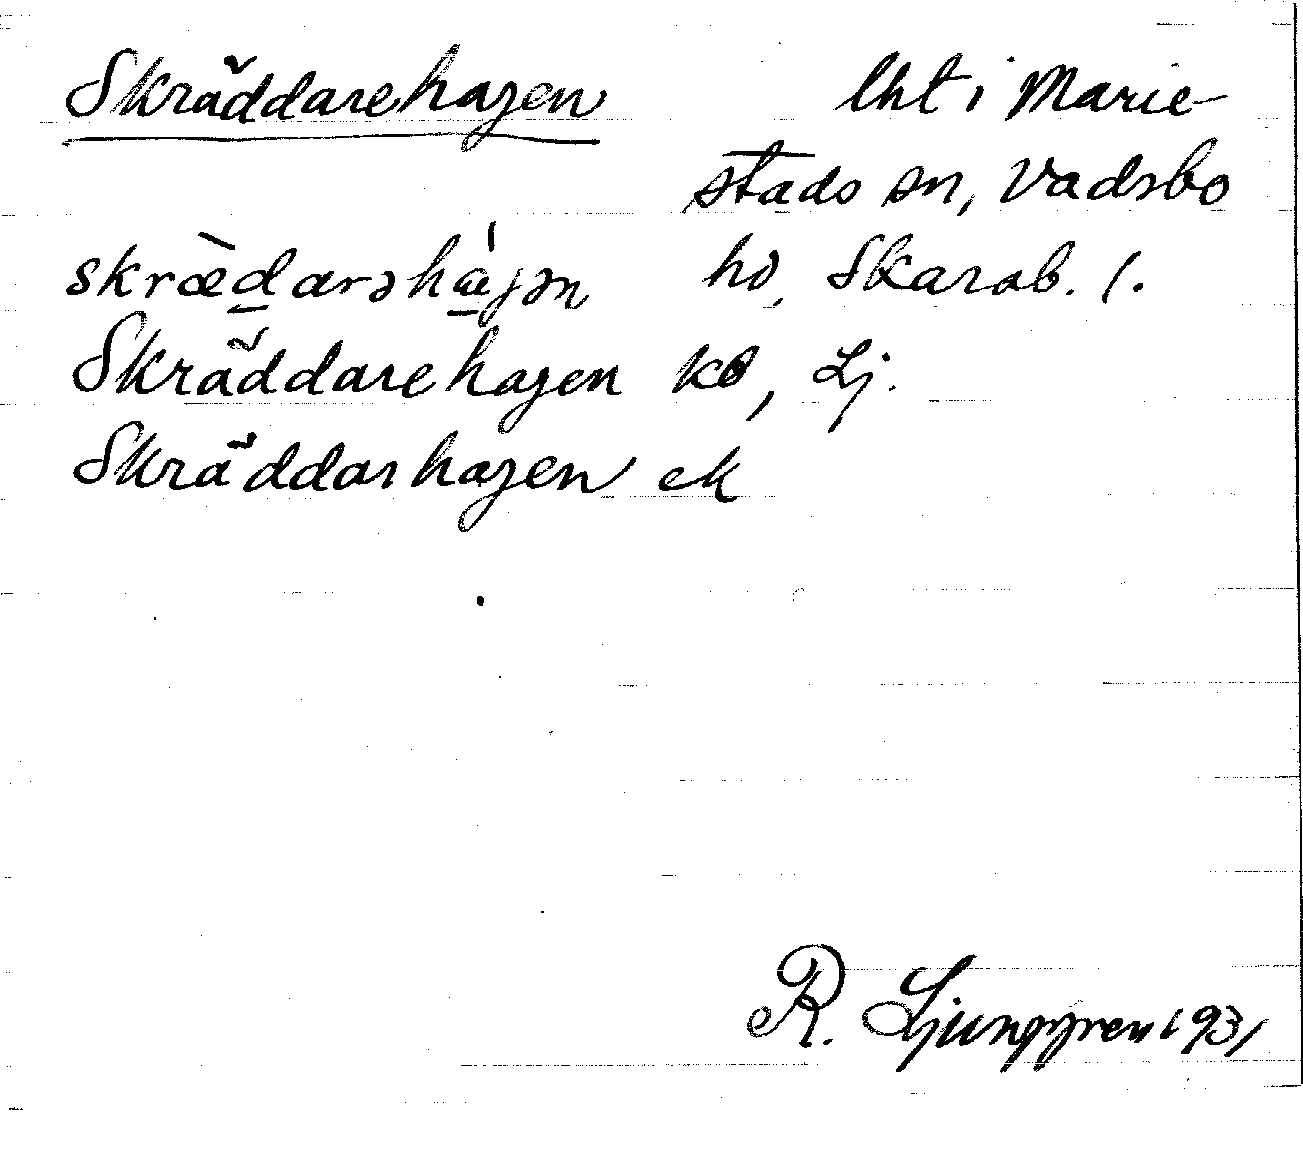 Skräddarehagen lht i Marie-
stads sn, Vadsbo
skræ̀darəhá̱gən hd, Skarab. l.
Skräddarehagen ko, Lj.
Skräddarhagen ek
R. Ljunggren 1931